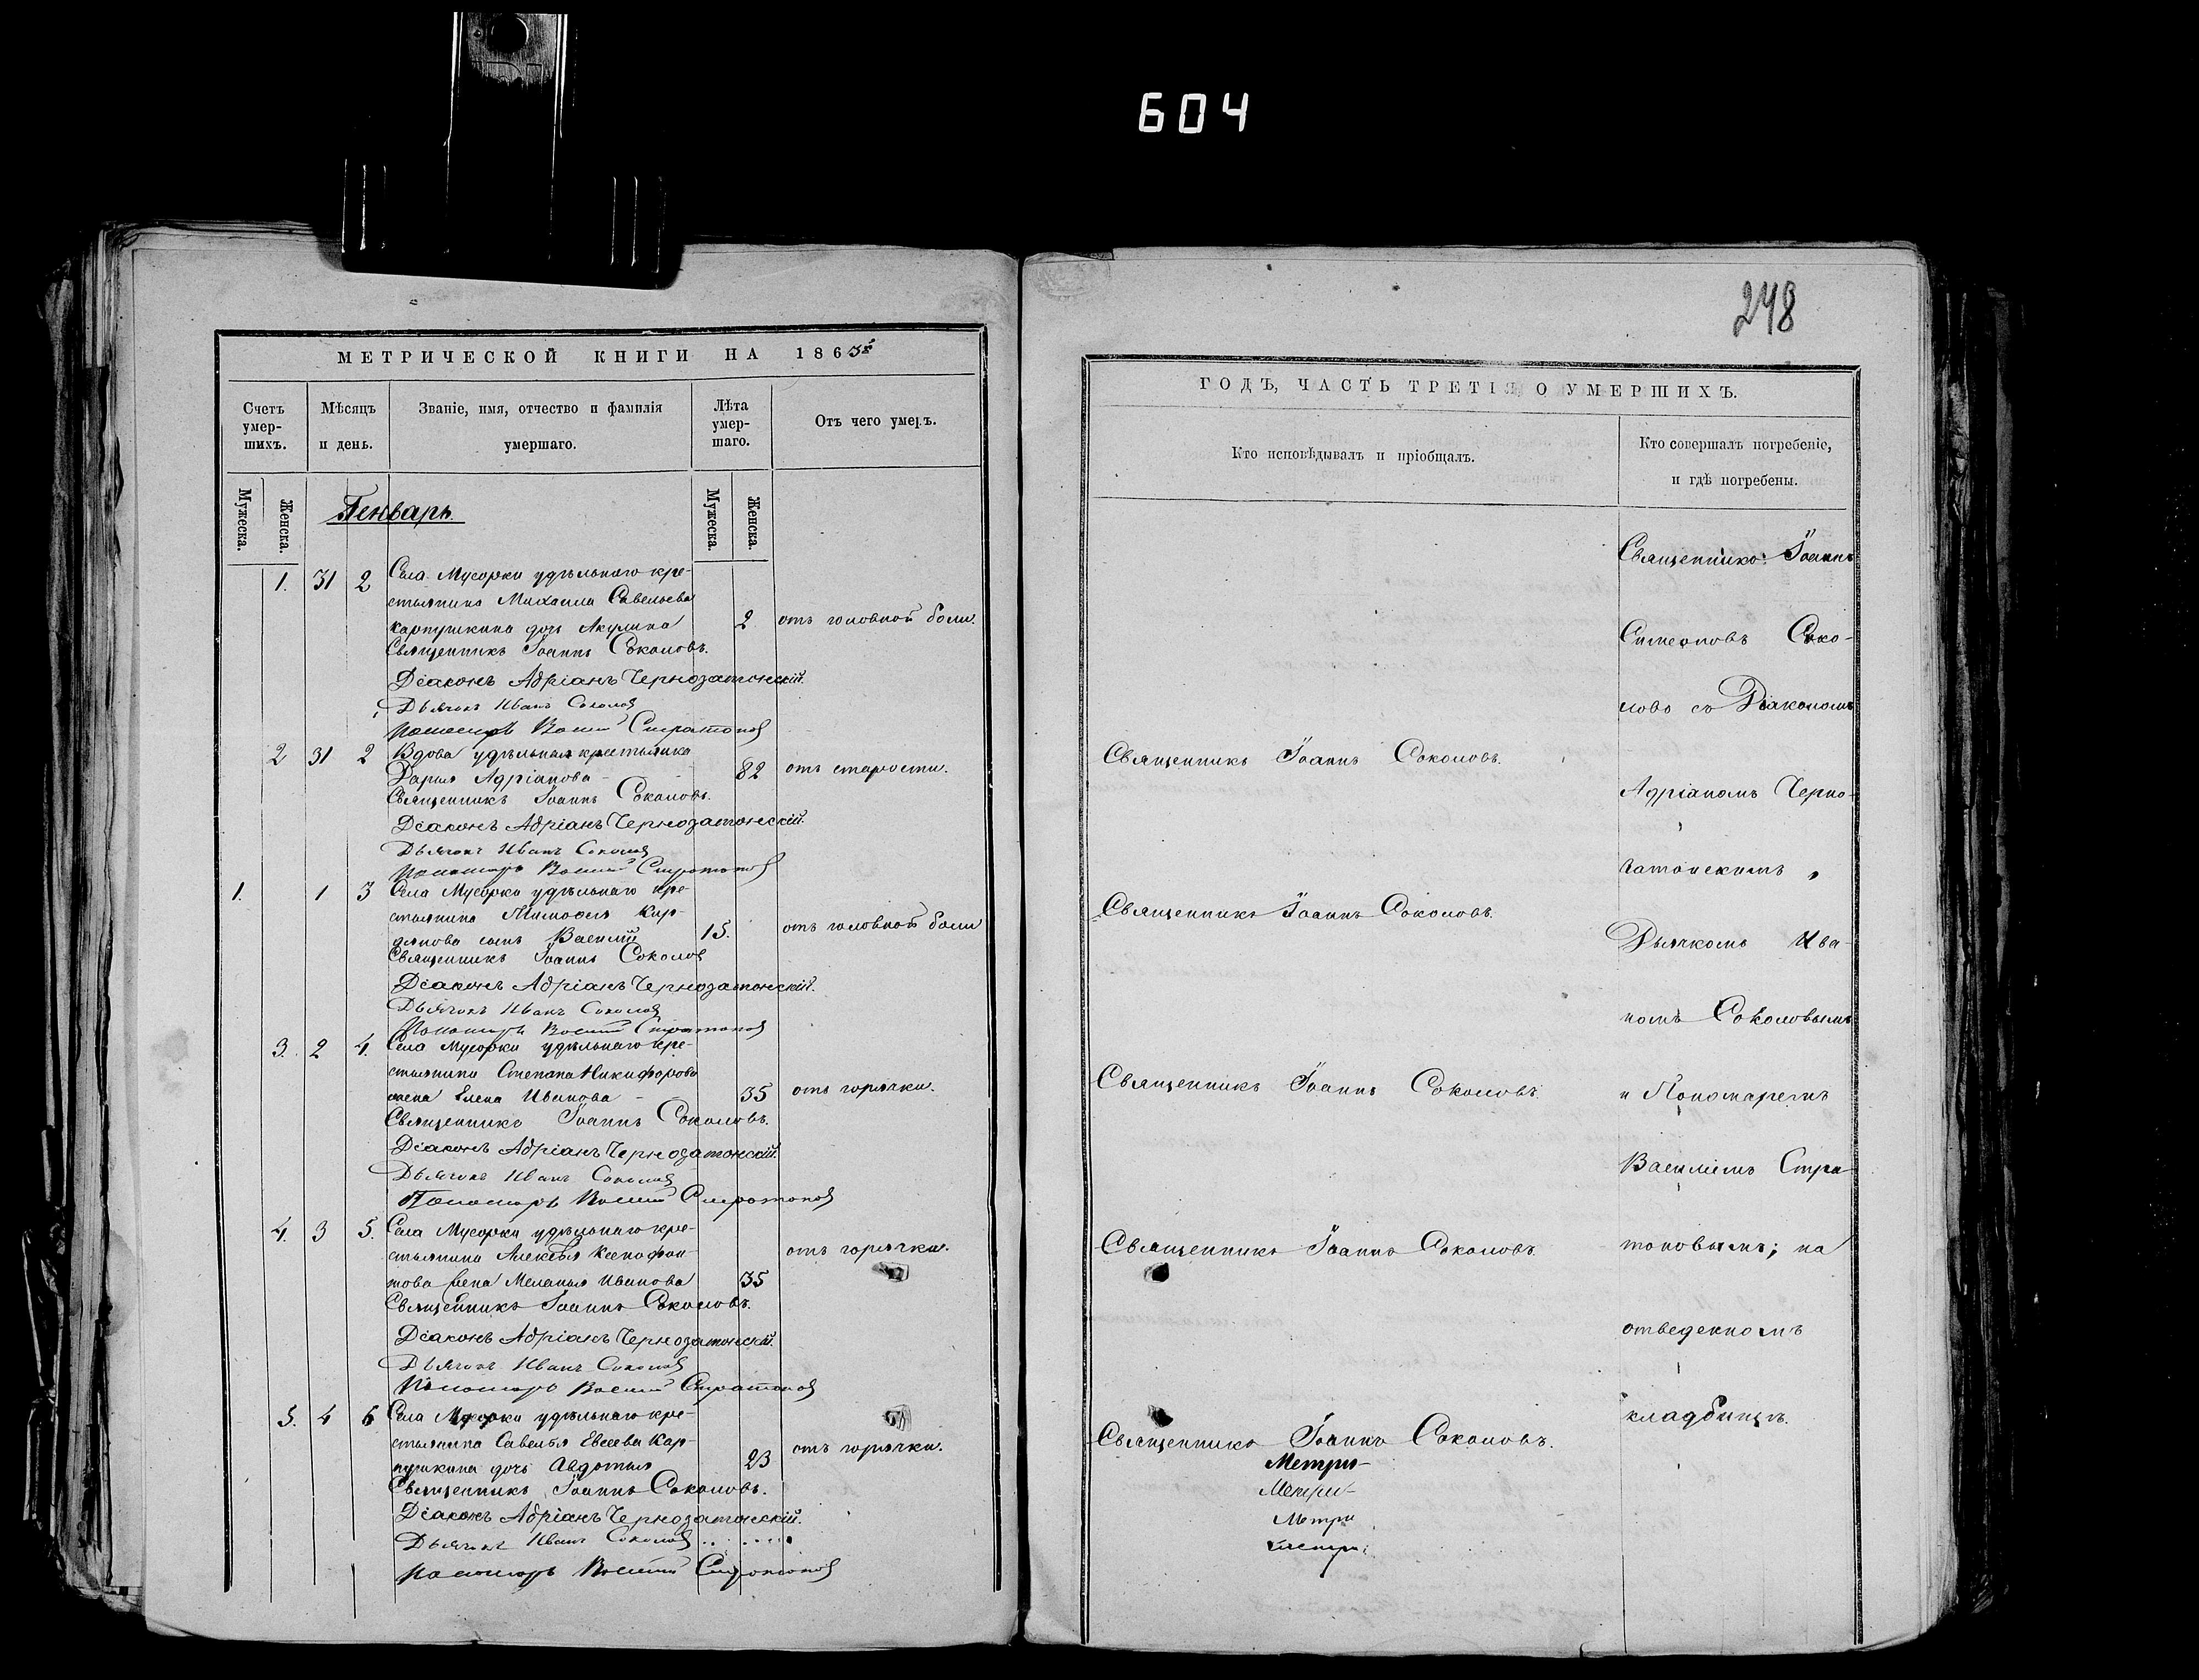 604
248
МЕТРИЧЕСКОЙ КНИГИ НА 1865й
Счетъ умер-шихъ.
Мѣсяцъ и день.
Званіе, имя, отчество и фамилія умершаго.
Лѣта умер-шаго.
Отъ чего умеръ.
Мужеска.
Женска.
Мужеска.
Женска.
Генварь.
1. 31 2 Села Мусорки удѣльнаго кре-
стьянина Михаила Савельева
Карпушкина дочь Акулина 2 отъ головной боли.
Священникъ Іоаннъ Соколовъ.
Діаконъ Адріанъ Чернозатонскій.
Дьячокъ Иванъ Соколов
Пономарь Василій Стратонов
2 31 2 Вдова удѣльная крестьянка
Дарья Адріанова 82 отъ старости.
Священникъ Іоаннъ Соколовъ.
Діаконъ Адріанъ Чернозатонскій.
Дьячокъ Иванъ Соколов
Пономарь Василій Стратонов
1. 1 3 Села Мусорки удѣльнаго кре-
стьянина Тимофея Кир-
сын Василій 15. отъ головной боли
Священникъ Іоаннъ Соколов
Діаконъ Адріанъ Чернозатонскій.
Дьячокъ Иванъ Соколов
Пономарь Василій Стратонов
3. 2 4. Села Мусорки удѣльнаго кре-
стьянина Степана Никифорова
жена Елена Иванова 35 отъ горячки.
Священникъ Іоаннъ Соколовъ.
Діаконъ Адріанъ Чернозатонскій.
Дьячокъ Иванъ Соколов
Пономарь Василій Стратонов
4. 3 5. Села Мусорки удѣльнаго кре-
стьянина Алексѣя Ксенофон-
това жена Меланья Иванова 35 отъ горячки.
Священникъ Іоаннъ Соколовъ.
Діаконъ Адріанъ Чернозатонскій.
Дьячокъ Иванъ Соколов
Пономарь Василій Стратонов
5. 4 6 Села Мусорки удѣльнаго кре-
стьянина Савелья Евсеева Кар-
пушкина дочь Авдотья 23 отъ горячки.
Священникъ Іоаннъ Соколовъ.
Діаконъ Адріанъ Чернозатонскій.
Дьячокъ Иванъ Соколов
Пономарь Василій Стратонов
ГОДЪ, ЧАСТЬ ТРЕТІЯ, О УМЕРШИХЪ.
Кто исповѣдывалъ и пріобщалъ.
Кто совершалъ погребеніе,
и гдѣ погребены.
Священникъ Іоаннъ Соколовъ.
Священникъ Іоаннъ Соколовъ.
Священникъ Іоаннъ Соколовъ.
Священникъ Іоаннъ Соколовъ.
Священникъ Іоаннъ Соколовъ.
Метри-
Метри-
Метри
Метри
Священникъ Іоаннъ
Симеоновъ Соко-
ловъ съ Діакономъ
Адріаномъ Черно-
затонскимъ,
Дьячкомъ Ива-
номъ Соколовымъ
и Пономаремъ
Василіемъ Стра-
тоновымъ; на
отведенномъ
кладбищѣ.